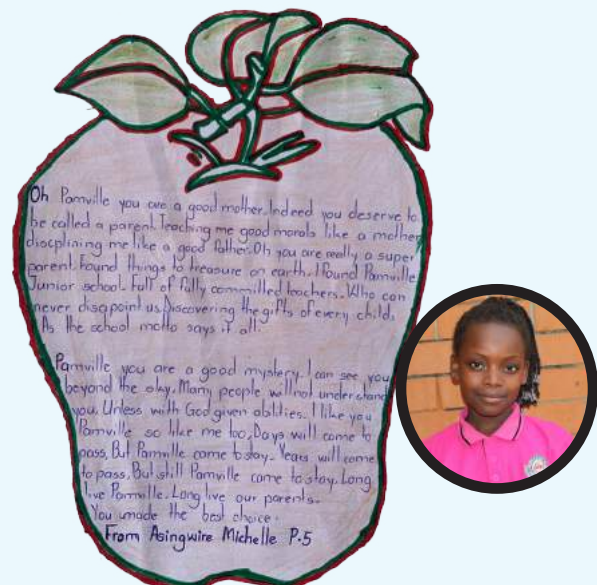 Oh Pamville you are a good mother. Indeed you deserve to
be called a parent. Teaching me good morals like a mother
discplining me like a good father. Oh you are really a super
parent. Found things to treasure on earth. I found Pamville
Junior school. Full of fully committed teachers. Who can
never disapoint us. Discovering the gifts of every child.
As the school motto says it all.
Pamville you are a good mystery. I can see you
beyond the sky. Many people will not understand
you. Unless with God given abilities. I like you
Pamville so like me too. Days will come to
pass, But Pamville came to stay. Years will come
to pass, But still Pamville came to stay. Long
live Pamville. Long live our parents.
You made the best choice.
From Asingwire Michelle P.5